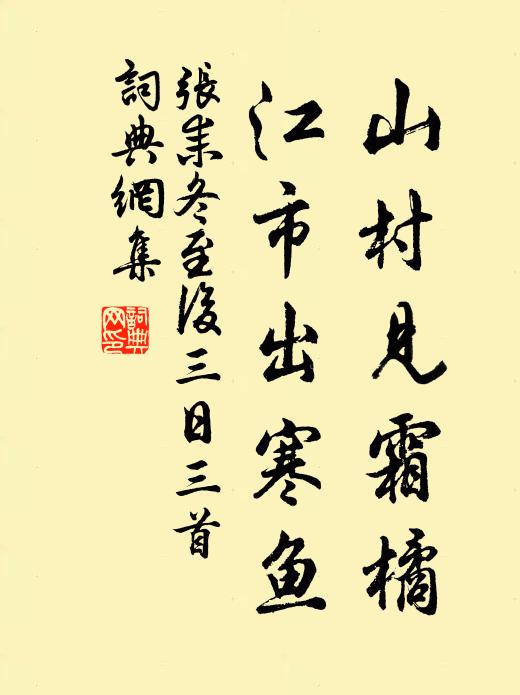 山村見霜橘
江市出寒魚
張耒冬至後三日三首
詞典網集
詞典网印